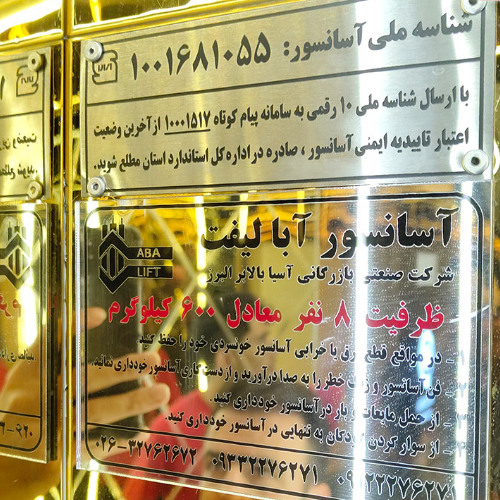 شناسه ملی آسانسور: ۱۰۰۱۶۸۱۰۵۵
با ارسال شناسه ملی ۱۰ رقمی به سامانه پیام کوتاه ۱۰۰۰۱۵۱۷ از آخرین وضعیت
اعتبار تاییدیه ایمنی آسانسور ، صادره در اداره کل استاندارد استان مطلع شوید.
آسانسور آبا لیفت
ABA
LIFT
شرکت صنعتی بازرگانی آسیا بالابر البرز
ظرفیت ۸ نفر معادل ۶۰۰ کیلوگرم
۱- در مواقع قطع برق یا خرابی آسانسور خونسردی خود را حفظ کنید.
فن آسانسور و زنگ خطر را به صدا درآورید و از دست کاری آسانسور خودداری نمائید.
از حمل مایعات و بار در آسانسور خودداری کنید.
از سوار کردن کودکان به تنهایی در آسانسور خودداری کنید.
۰۲۶-۳۲۷۶۲۶۷۲ ۰۹۳۳۲۲۷۶۲۷۱